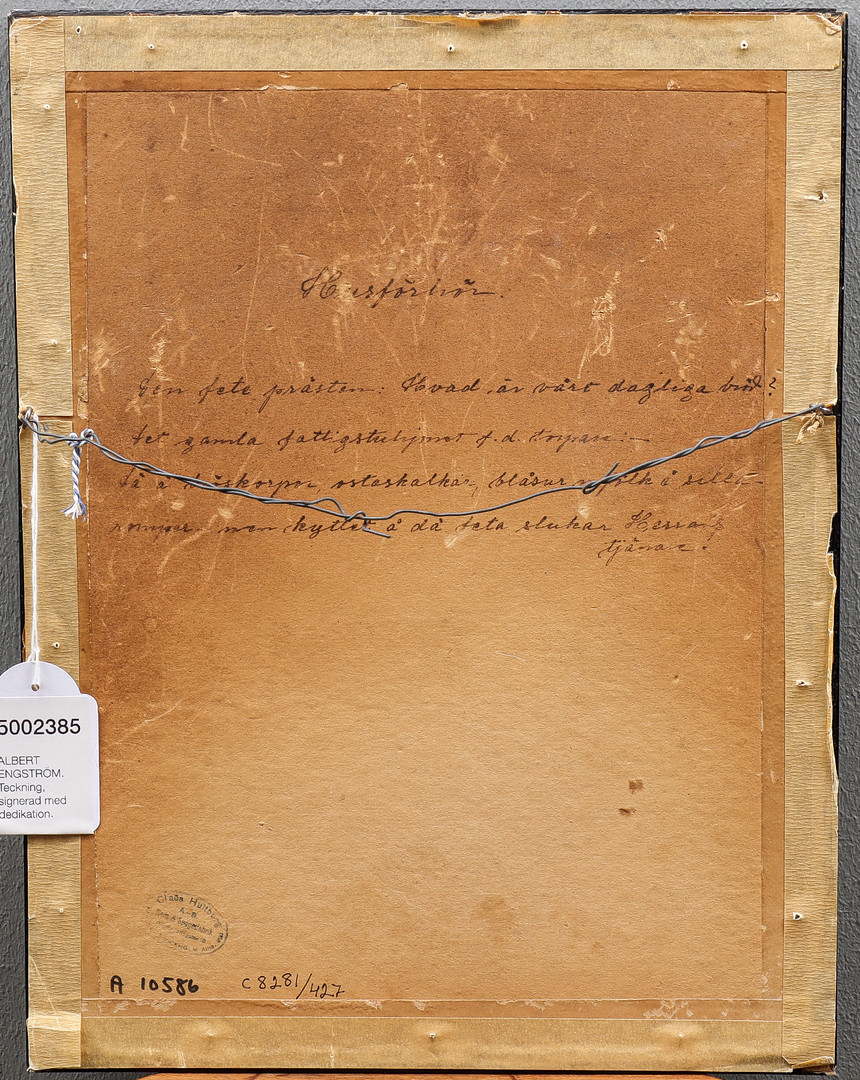 Husförhör.
Den fete prästen: Hvad är vårt dagliga bröd?
Det gamla fattigstuhjonet f.d. torpare:—
Då ä bröskorpor, ostaskalkar, blåsur mjölk å sill-
rompor men kyttet å då feta slukar Herrans
tjänare.
5002385
ALBERT
ENGSTRÖM.
Teckning,
signerad med
dedikation.
Claës Hultberg
A.-B.
A 10586
C 8281/427